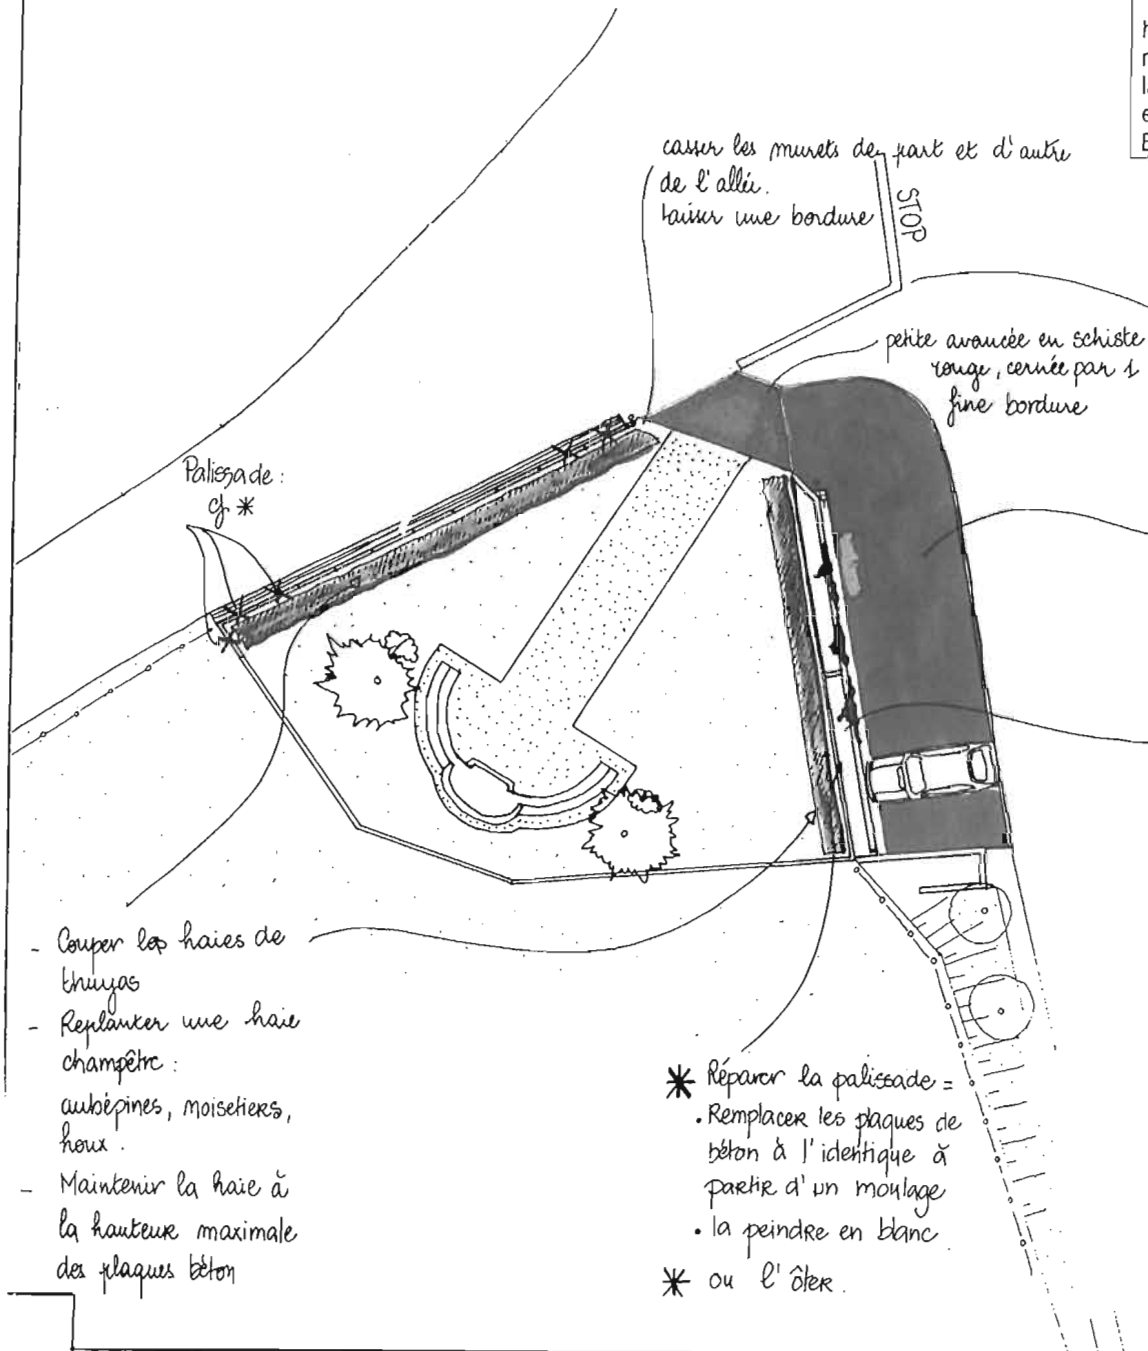 casser les murets de part et d'autre
de l'allée.
laisser une bordure
STOP
petite avancée en schiste
rouge, cernée par 1
fine bordure
Palissade :
cf *
- Couper les haies de
thuyas
- Replanter une haie
champêtre :
aubépines, noisetiers,
houx.
- Maintenir la haie à
la hauteur maximale
des plaques béton
* Réparer la palissade =
. Remplacer les plaques de
béton à l'identique à
partir d'un moulage
. la peindre en blanc
* ou l'ôter.